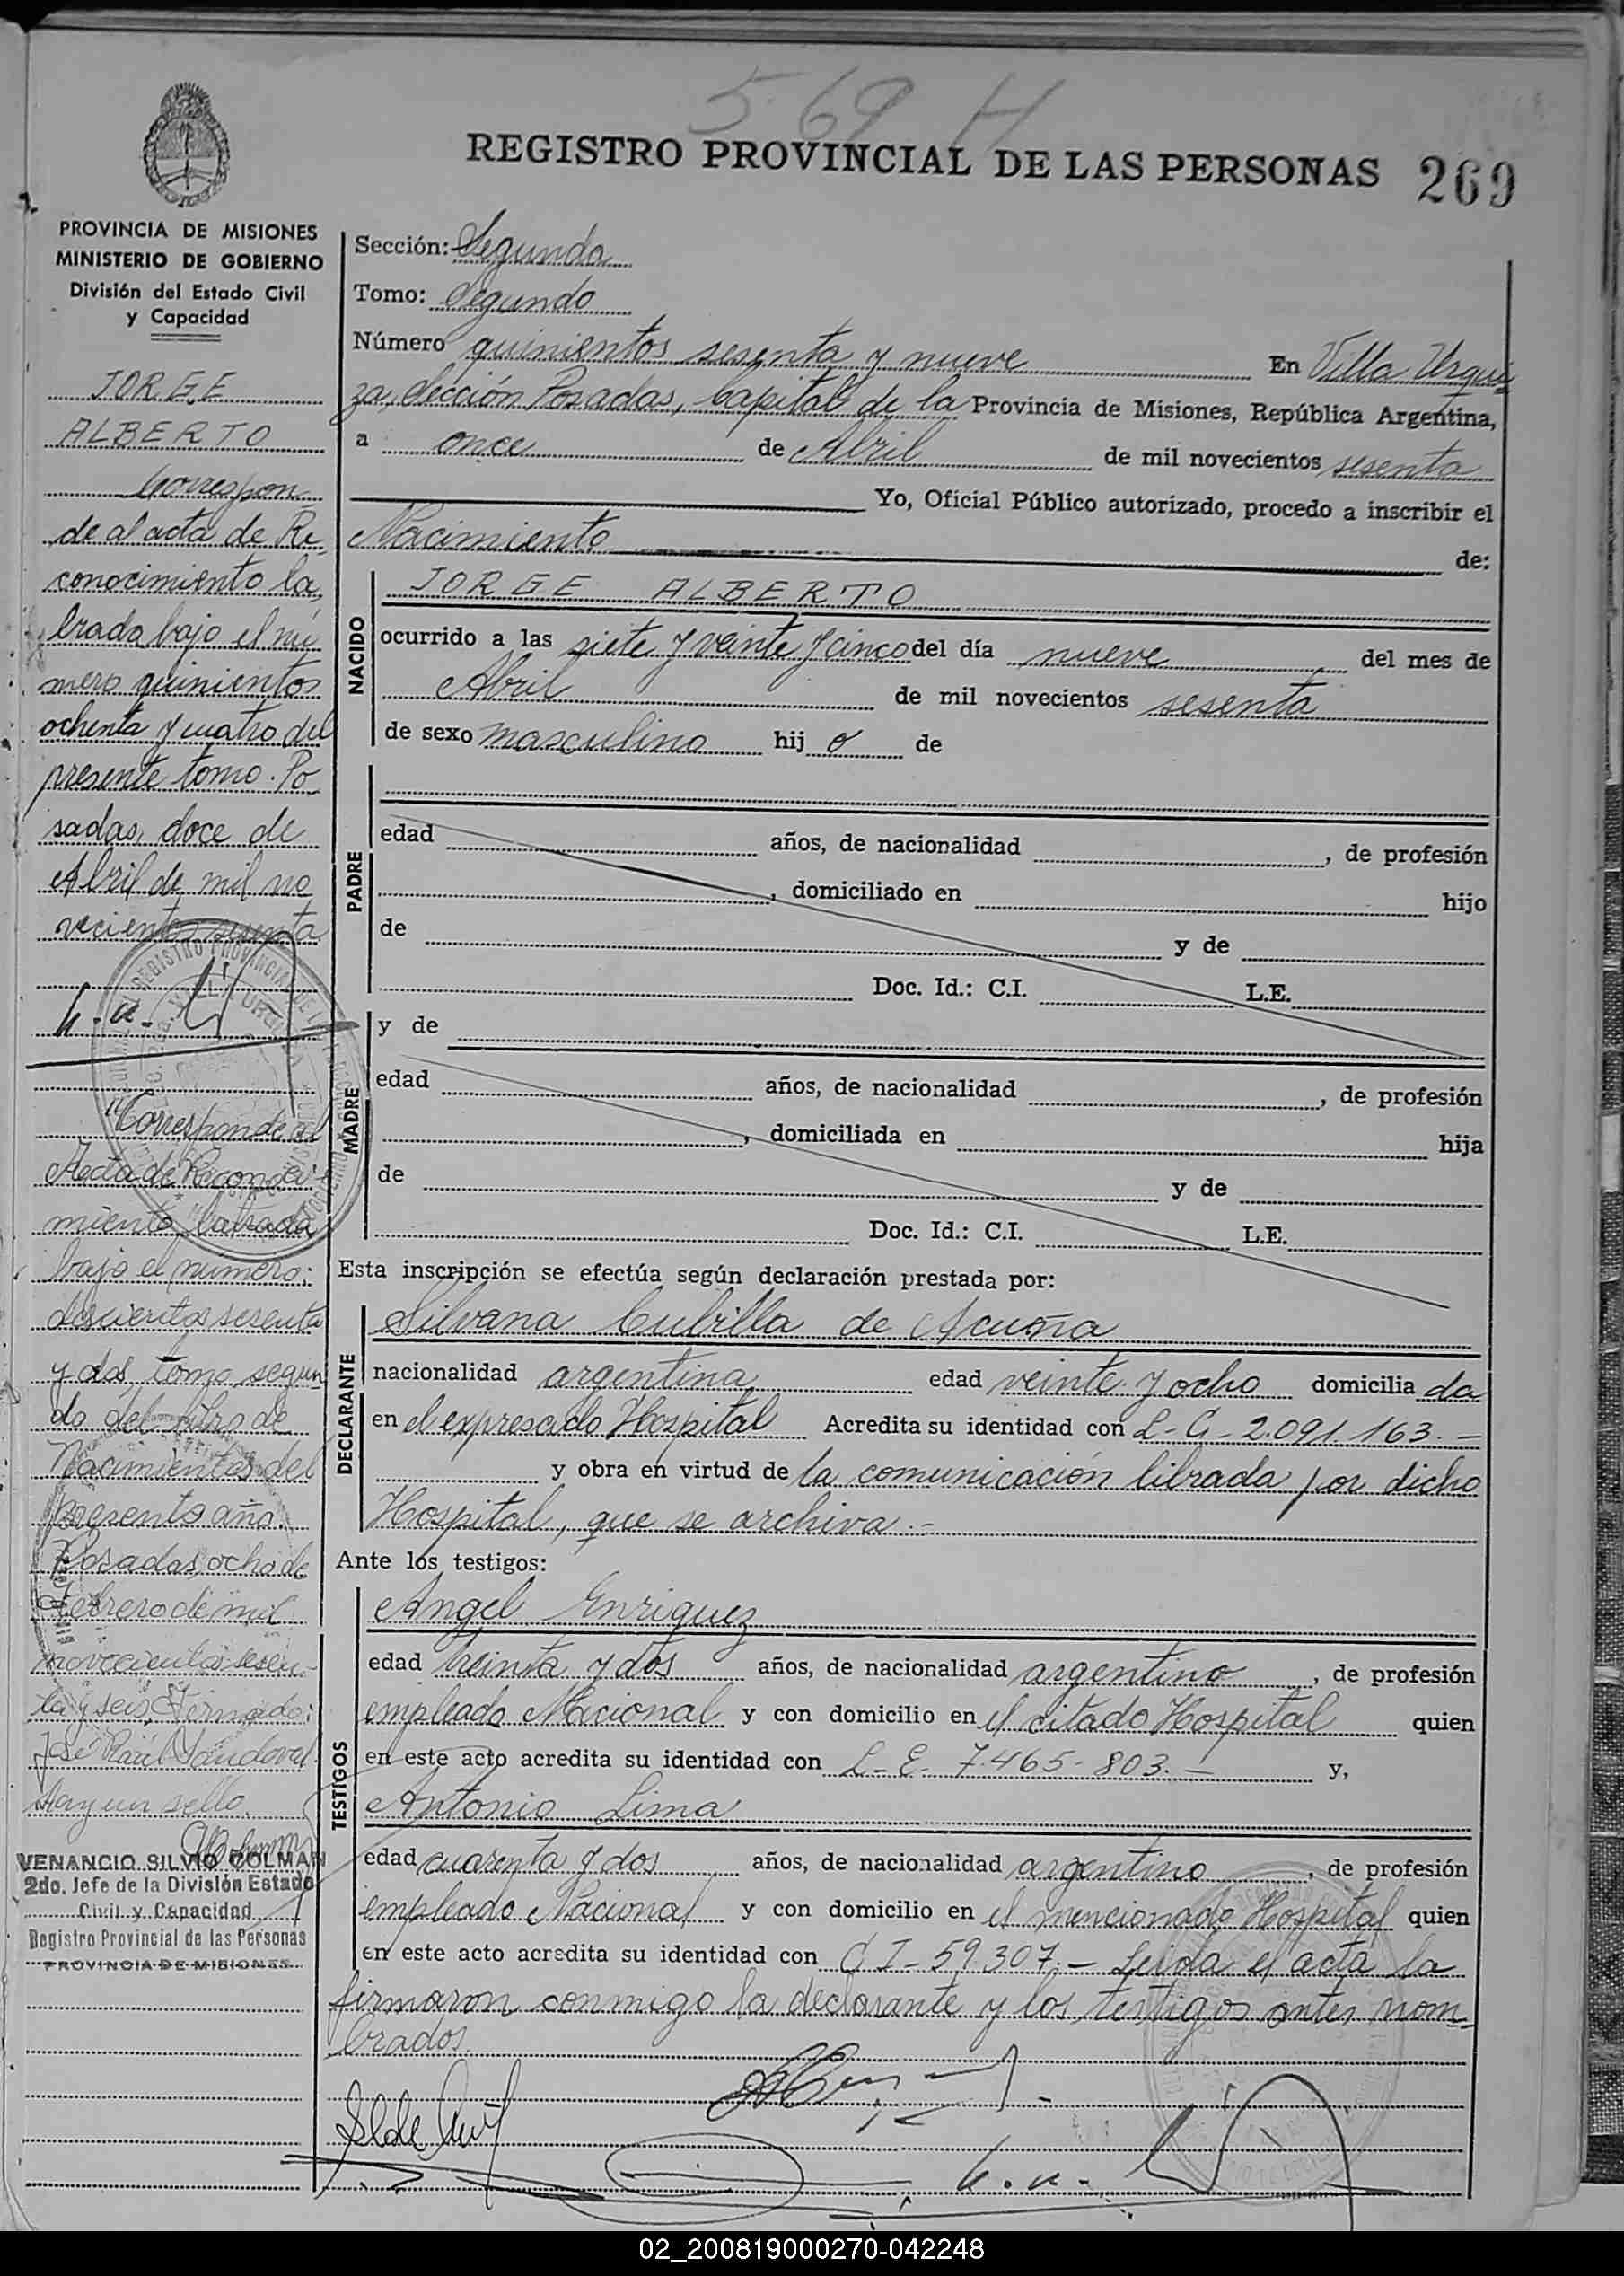 569 H
REGISTRO PROVINCIAL DE LAS PERSONAS 269
PROVINCIA DE MISIONES
MINISTERIO DE GOBIERNO
División del Estado Civil
y Capacidad
JORGE
ALBERTO
Correspon
de al acta de Re
conocimiento la
brada bajo el nú
mero quinientos
ochenta y cuatro del
presente tomo. Po
sadas, doce de
Abril de mil no
vecientos sesenta
"Corresponde al
Acta de Reconoci
miento labrada
bajo el número:
doscientos sesenta
y dos, tomo segun
do del libro de
Nacimientos del
presente año.
Posadas, ocho de
Febrero de mil
novecientos sesen
ta y seis, Firmado:
José Raúl Sandoval
Hay un sello.
VENANCIO SILVIO COLMAN
2do. Jefe de la División Estado
Civil y Capacidad
Registro Provincial de las Personas
PROVINCIA DE MISIONES
Sección: Segunda
Tomo: Segundo
Número quinientos sesenta y nueve En Villa Urqui
za, Sección Posadas, Capital de la Provincia de Misiones, República Argentina,
a once de Abril de mil novecientos sesenta
Yo, Oficial Público autorizado, procedo a inscribir el
Nacimiento de:
NACIDO
JORGE ALBERTO
ocurrido a las siete y veinte y cinco del día nueve del mes de
Abril de mil novecientos sesenta
de sexo masculino hij o de
PADRE
edad años, de nacionalidad , de profesión
, domiciliado en hijo
de y de
Doc. Id.: C.I. L.E.
MADRE
y de
edad años, de nacionalidad , de profesión
, domiciliada en hija
de y de
Doc. Id.: C.I. L.E.
Esta inscripción se efectúa según declaración prestada por:
DECLARANTE
Silvana Cubilla de Acuña
nacionalidad argentina edad veinte y ocho domicilia da
en el expresado Hospital Acredita su identidad con L-C-2.091.163.-
y obra en virtud de la comunicación librada por dicho
Hospital, que se archiva.-
Ante los testigos:
TESTIGOS
Angel Enriquez
edad treinta y dos años, de nacionalidad argentino , de profesión
empleado Nacional y con domicilio en el citado Hospital quien
en este acto acredita su identidad con L-E- 7.465-803.- y,
Antonio Lima
edad cuarenta y dos años, de nacionalidad argentino , de profesión
empleado Nacional y con domicilio en el mencionado Hospital quien
en este acto acredita su identidad con C I-59.307.- Leida el acta la
firmaron conmigo la declarante y los testigos antes nom-
brados.
02_200819000270-042248